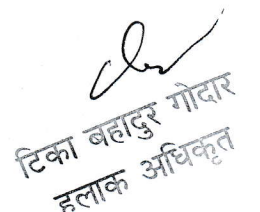 टिका बहादुर गोदार
हलाक अधिकृत